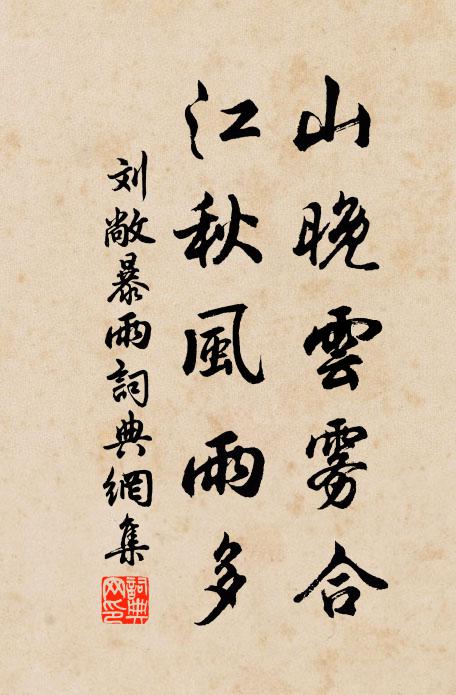 山晚雲雾合
江秋風雨多
刘敞暴雨詞典網集
詞典
网印